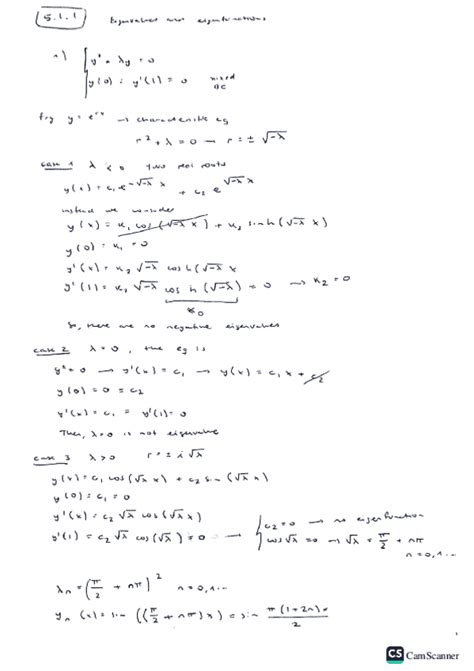 5.1.1 Eigenvalues and eigenfunctions
1) { y'' + λy = 0
y(0) = y'(1) = 0 mixed BC
Try y = e^{rx} → characteristic eq
r² + λ = 0 → r = ± √-λ
case 1 λ < 0 Two real roots
y(x) = c₁ e^{-√-λ x} + c₂ e^{√-λ x}
instead we consider
y(x) = k₁ cosh(√-λ x) + k₂ sinh(√-λ x)
y(0) = k₁ = 0
y'(x) = k₂ √-λ cosh(√-λ x
y'(1) = k₂ √-λ cosh(√-λ) = 0 → k₂ = 0
≠ 0
So, there are no negative eigenvalues
case 2 λ = 0, the eq is
y'' = 0 → y'(x) = c₁ → y(x) = c₁ x + c₂
y(0) = 0 = c₂
y'(x) = c₁ = y'(1) = 0
Then, λ = 0 is not eigenvalue
case 3 λ > 0 r = ± i √λ
y(x) = c₁ cos(√λ x) + c₂ sin(√λ x)
y(0) = c₁ = 0
y'(x) = c₂ √λ cos(√λ x)
y'(1) = c₂ √λ cos(√λ) = 0 → { c₂ = 0 → no eigenfunction
cos √λ = 0 → √λ = π/2 + nπ
n = 0, 1...
λₙ = (π/2 + nπ)² n = 0, 1...
yₙ(x) = sin((π/2 + nπ)x) = sin π(1+2n)x/2
CS CamScanner